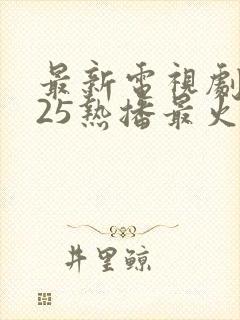 最新電視劇
25熱播最火
井里鯨